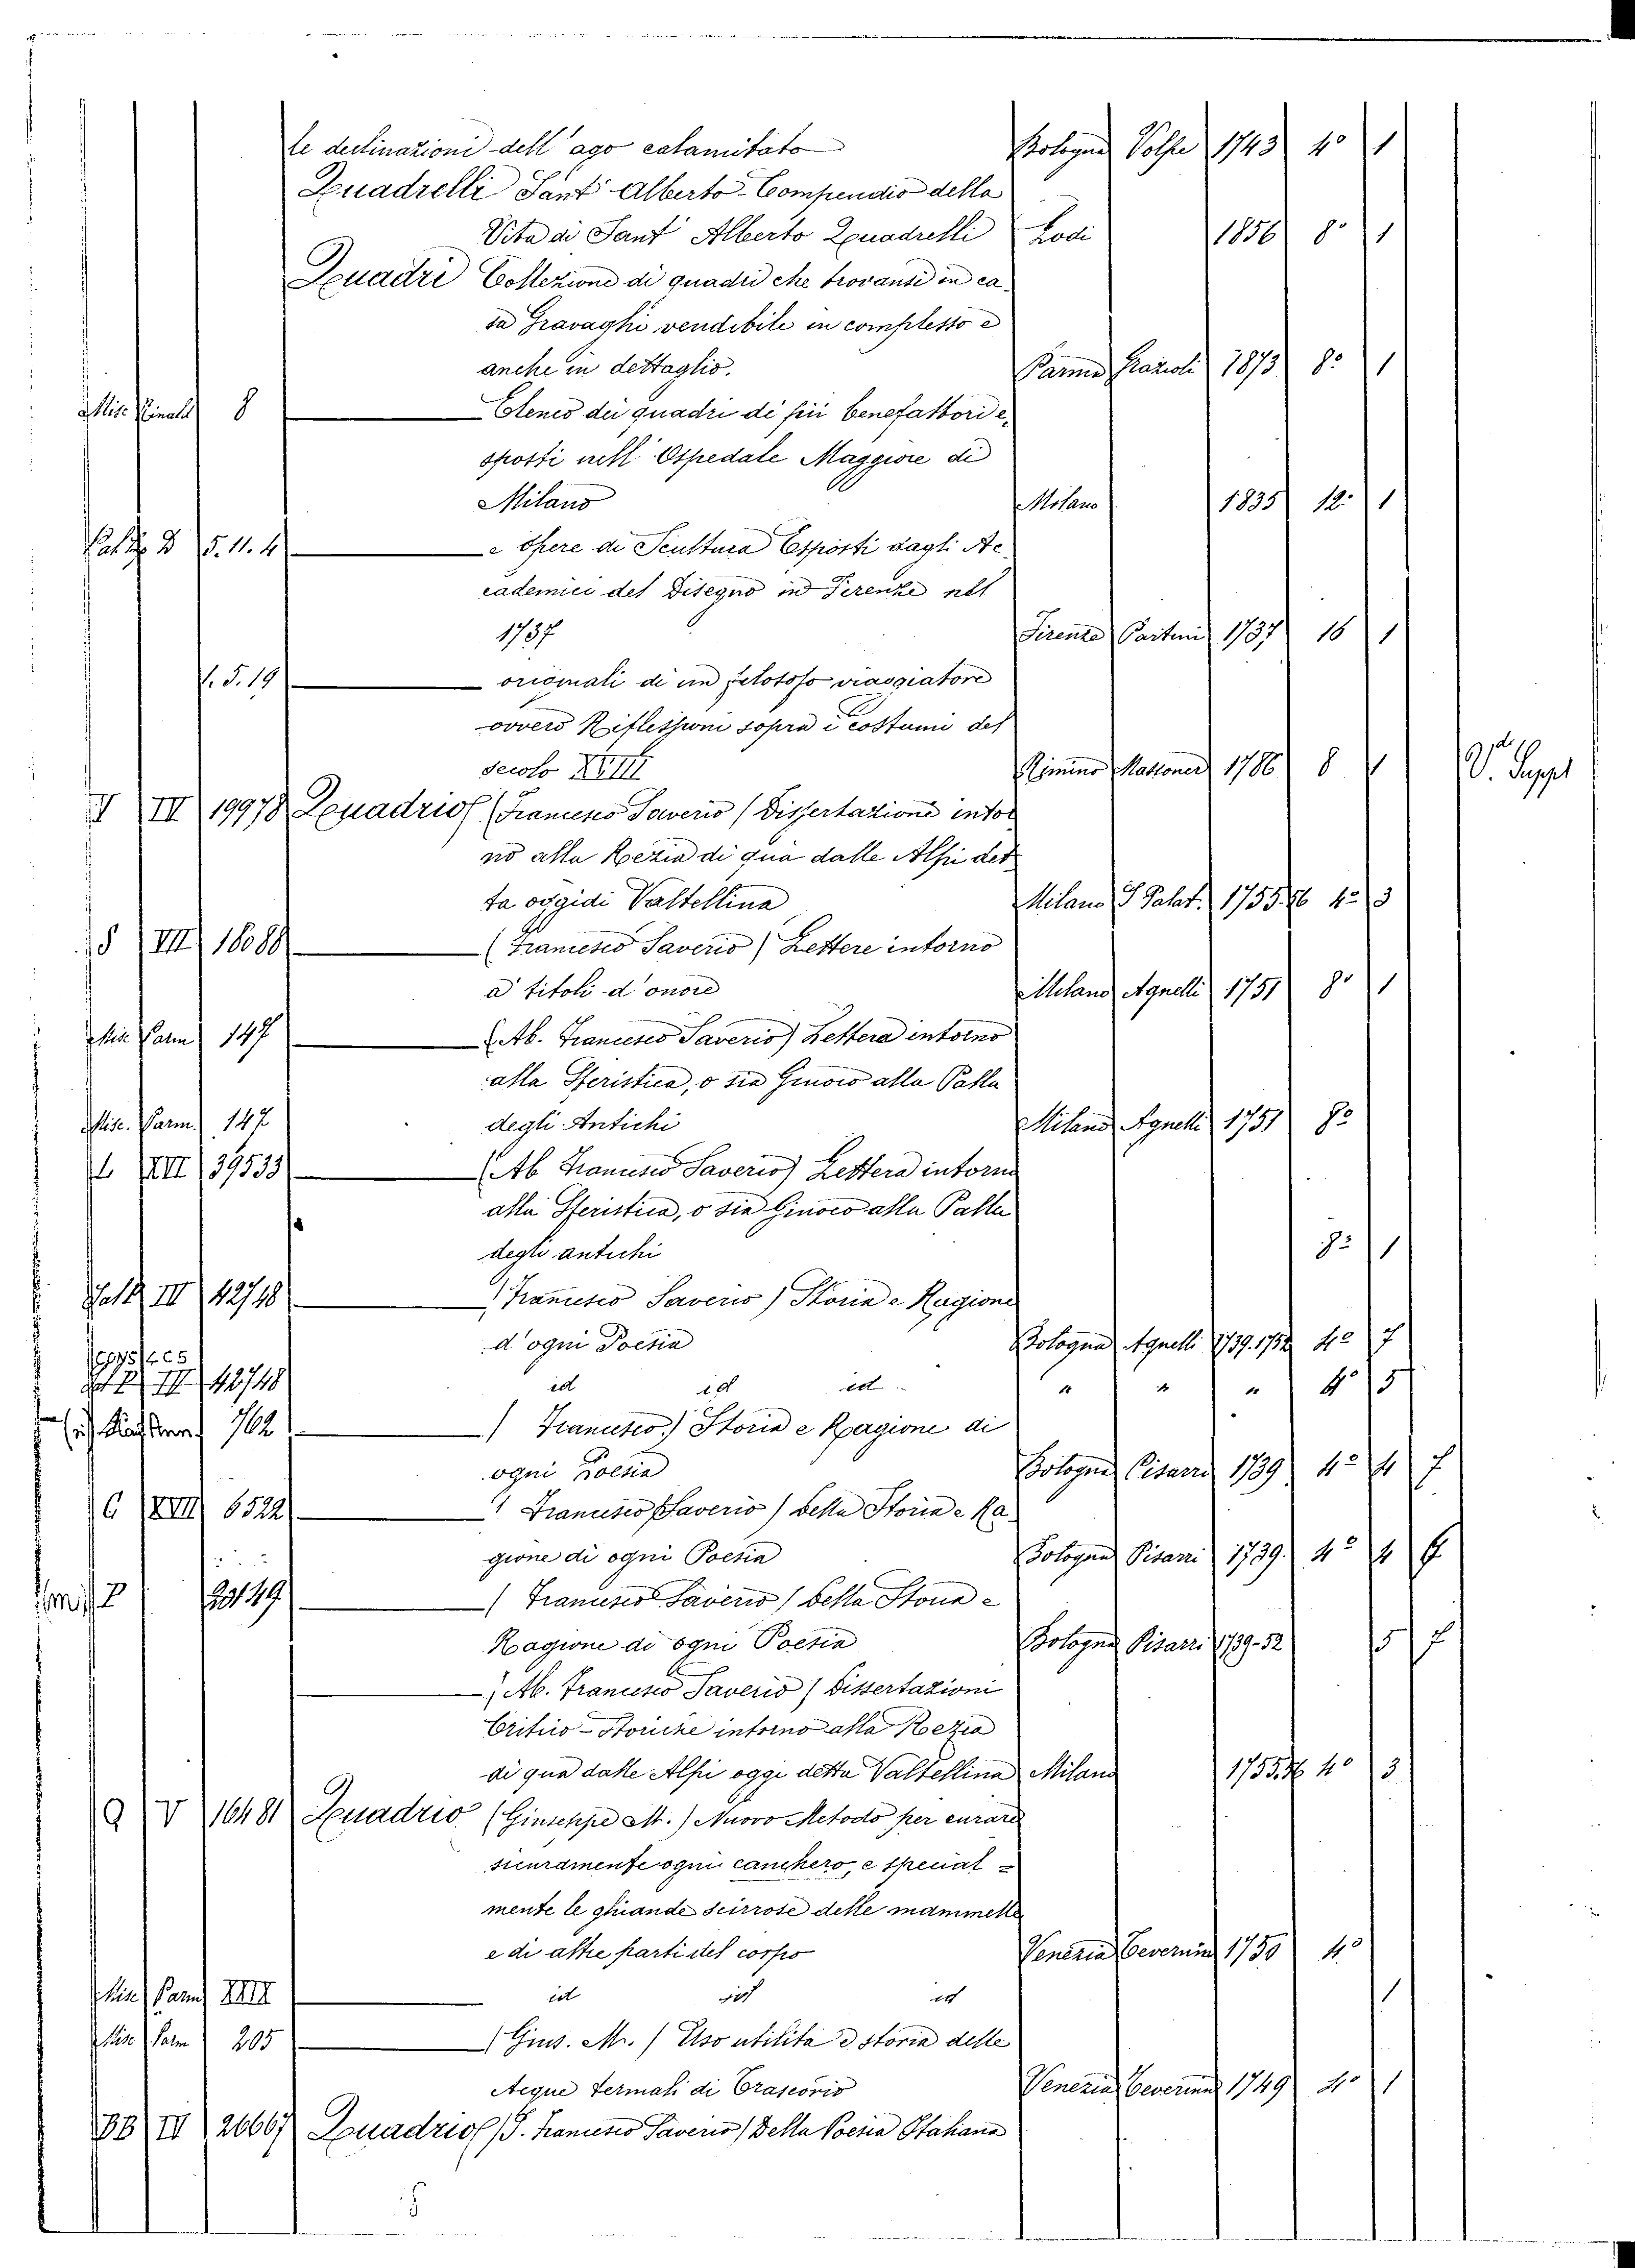 le declinazioni dell'ago calamitato Bologna Volpe 1743 4° 1
Quadrelli Sant'Alberto - Compendio della
Vita di Sant'Alberto Quadrelli Lodi 1856 8° 1
Quadri Collezione di quadri che trovansi in ca
sa Gravaghi vendibile in complesso e
anche in dettaglio. Parma Grazioli 1873 8° 1
Misc. Rinald 8 Elenco dei quadri di pii benefattori e
sposti nell'Ospedale Maggiore di
Milano Milano 1835 12° 1
5. 11. 4 e opere di Scultura Esposti dagli Ac
cademici del Disegno in Firenze nel
1737 Firenze 1737 16 1
V. 5. 19 originali di un filosofo viaggiatore
ovvero Riflessioni sopra i costumi del
secolo XVIII Rimino 1786 8 1 V. Suppl
I IV 19978 Quadrio (Francesco Saverio) Dissertazione intor
no alla Rezia di qua dalle Alpi det
ta oggidi Valtellina Milano S Palat. 1755.56 4° 3
§ VIII 16088 (Francesco Saverio) Lettere intorno
a' titoli d'onore Milano Agnelli 1751 8° 1
Misc Parm 147 (Ab. Francesco Saverio) Lettera intorno
alla Sferistica, o sia Giuoco alla Palla
Misc. Parm. 147 degli Antichi Milano Agnelli 1751 8°
L XVI 39533 (Ab Francesco Saverio) Lettera intorno
alla Sferistica, o sia Giuoco alla Palla
degli antichi 8° 1
Palt III 42748 (Francesco Saverio) Storia e Ragione
d'ogni Poesia Bologna Agnelli 1739.1752 4° 7
III 42748 id id id " " " 4° 5
762 (Francesco) Storia e Ragione di
ogni Poesia Bologna Pisarri 1739 4° 4 7
G XVII 6522 (Francesco Saverio) della Storia e Ra
gione di ogni Poesia Bologna Pisarri 1739. 4° 4
(Francesco Saverio) della Storia e
Ragione di ogni Poesia Bologna Pisarri 1739-52 5 7
(Ab. Francesco Saverio) Dissertazioni
Critico-Storiche intorno alla Rezia
di qua dalle Alpi oggi detta Valtellina Milano 1755.56 4° 3
Q V 16481 Quadrio (Giuseppe M.) Nuovo Metodo per curare
sicuramente ogni canchero, e special =
mente le ghiande scirrose delle mammelle
e di altre parti del corpo Venezia 1750 4°
Misc Parm XIII id id id 1
Misc Parm 205 (Gius. M.) Uso utilità e storia delle
Acque termali di Trascorio Venezia 1749 4° 1
BB IV 26667 Quadrio (S. Francesco Saverio) Della Poesia Italiana